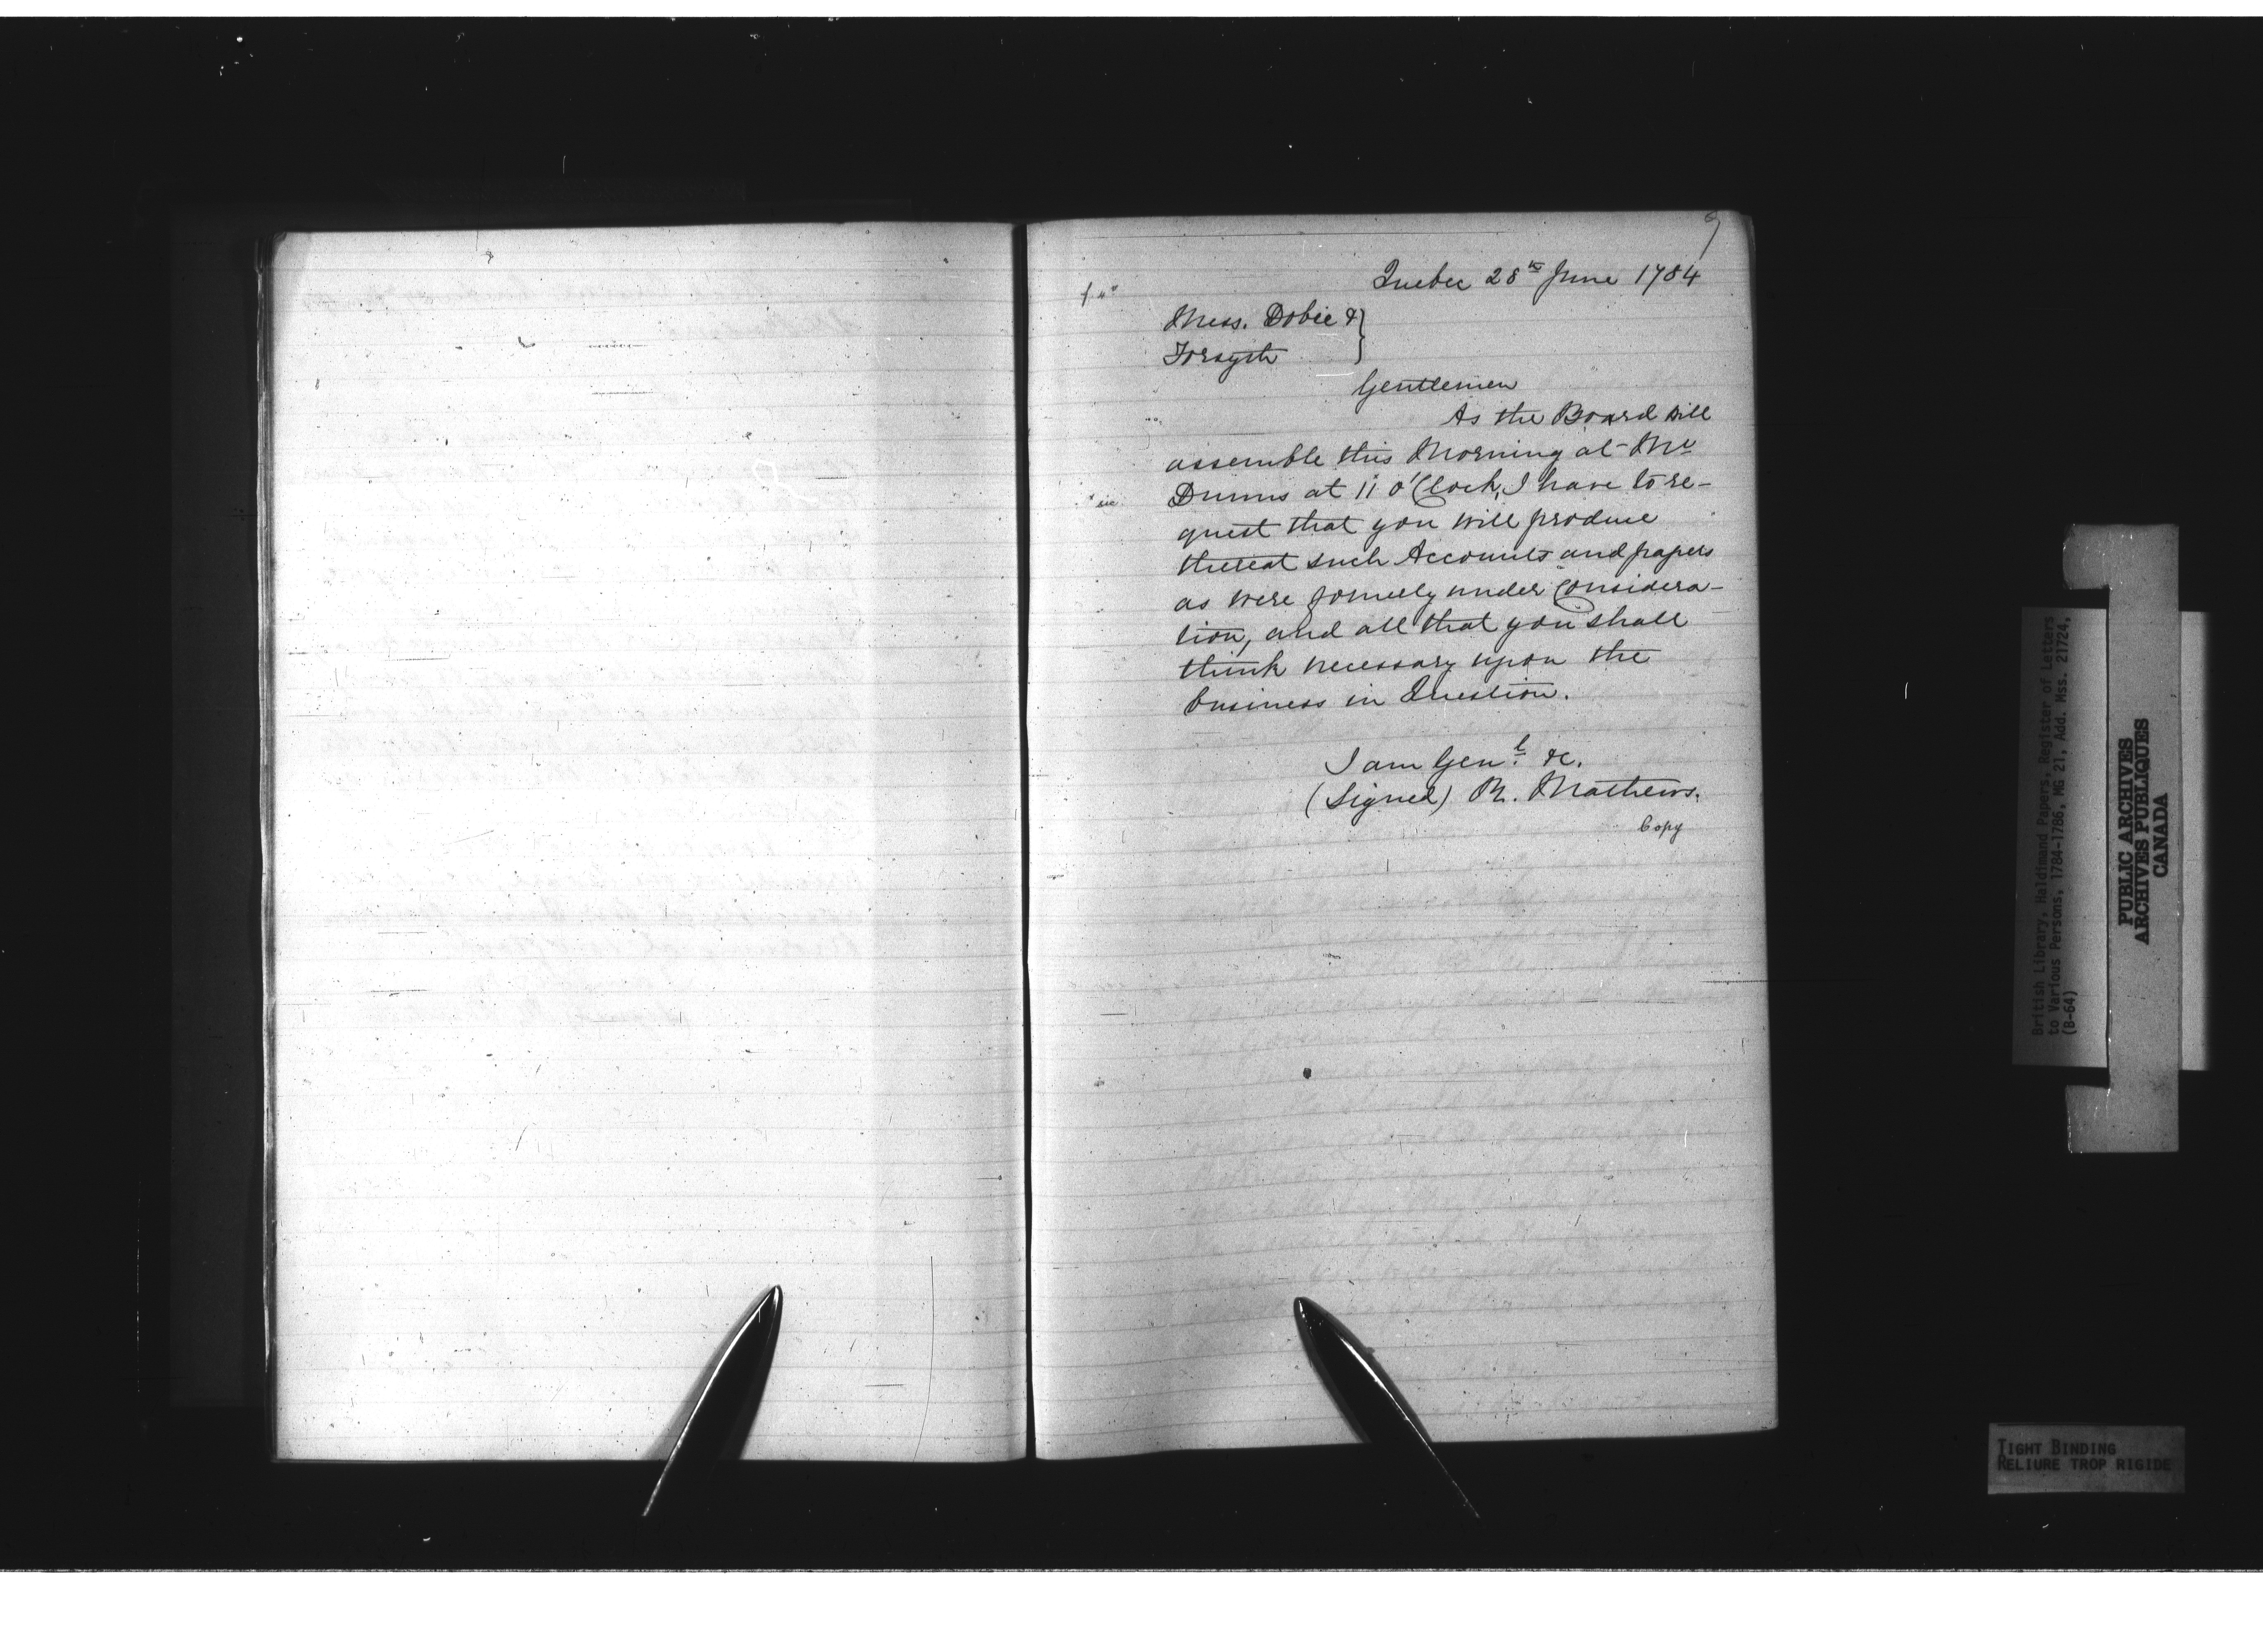 9
Quebec 28th June 1784
Mess. Dobie &
Forsyth
Gentlemen
As the Board will
assemble this Morning at Mr
Dunns at 11 o'Clock, I have to re-
quest that you will produce
thereat such Accounts and papers
as were formerly under Considera-
tion, and all that you shall
think necessary upon the
business in Question.
I am Genl. &c.
(Signed) R. Mathews.
Copy
British Library, Haldimand Papers, Register of Letters
to Various Persons, 1784-1786, MG 21, Add. Mss. 21724,
(B-64)
PUBLIC ARCHIVES
ARCHIVES PUBLIQUES
CANADA
TIGHT BINDING
RELIURE TROP RIGIDE